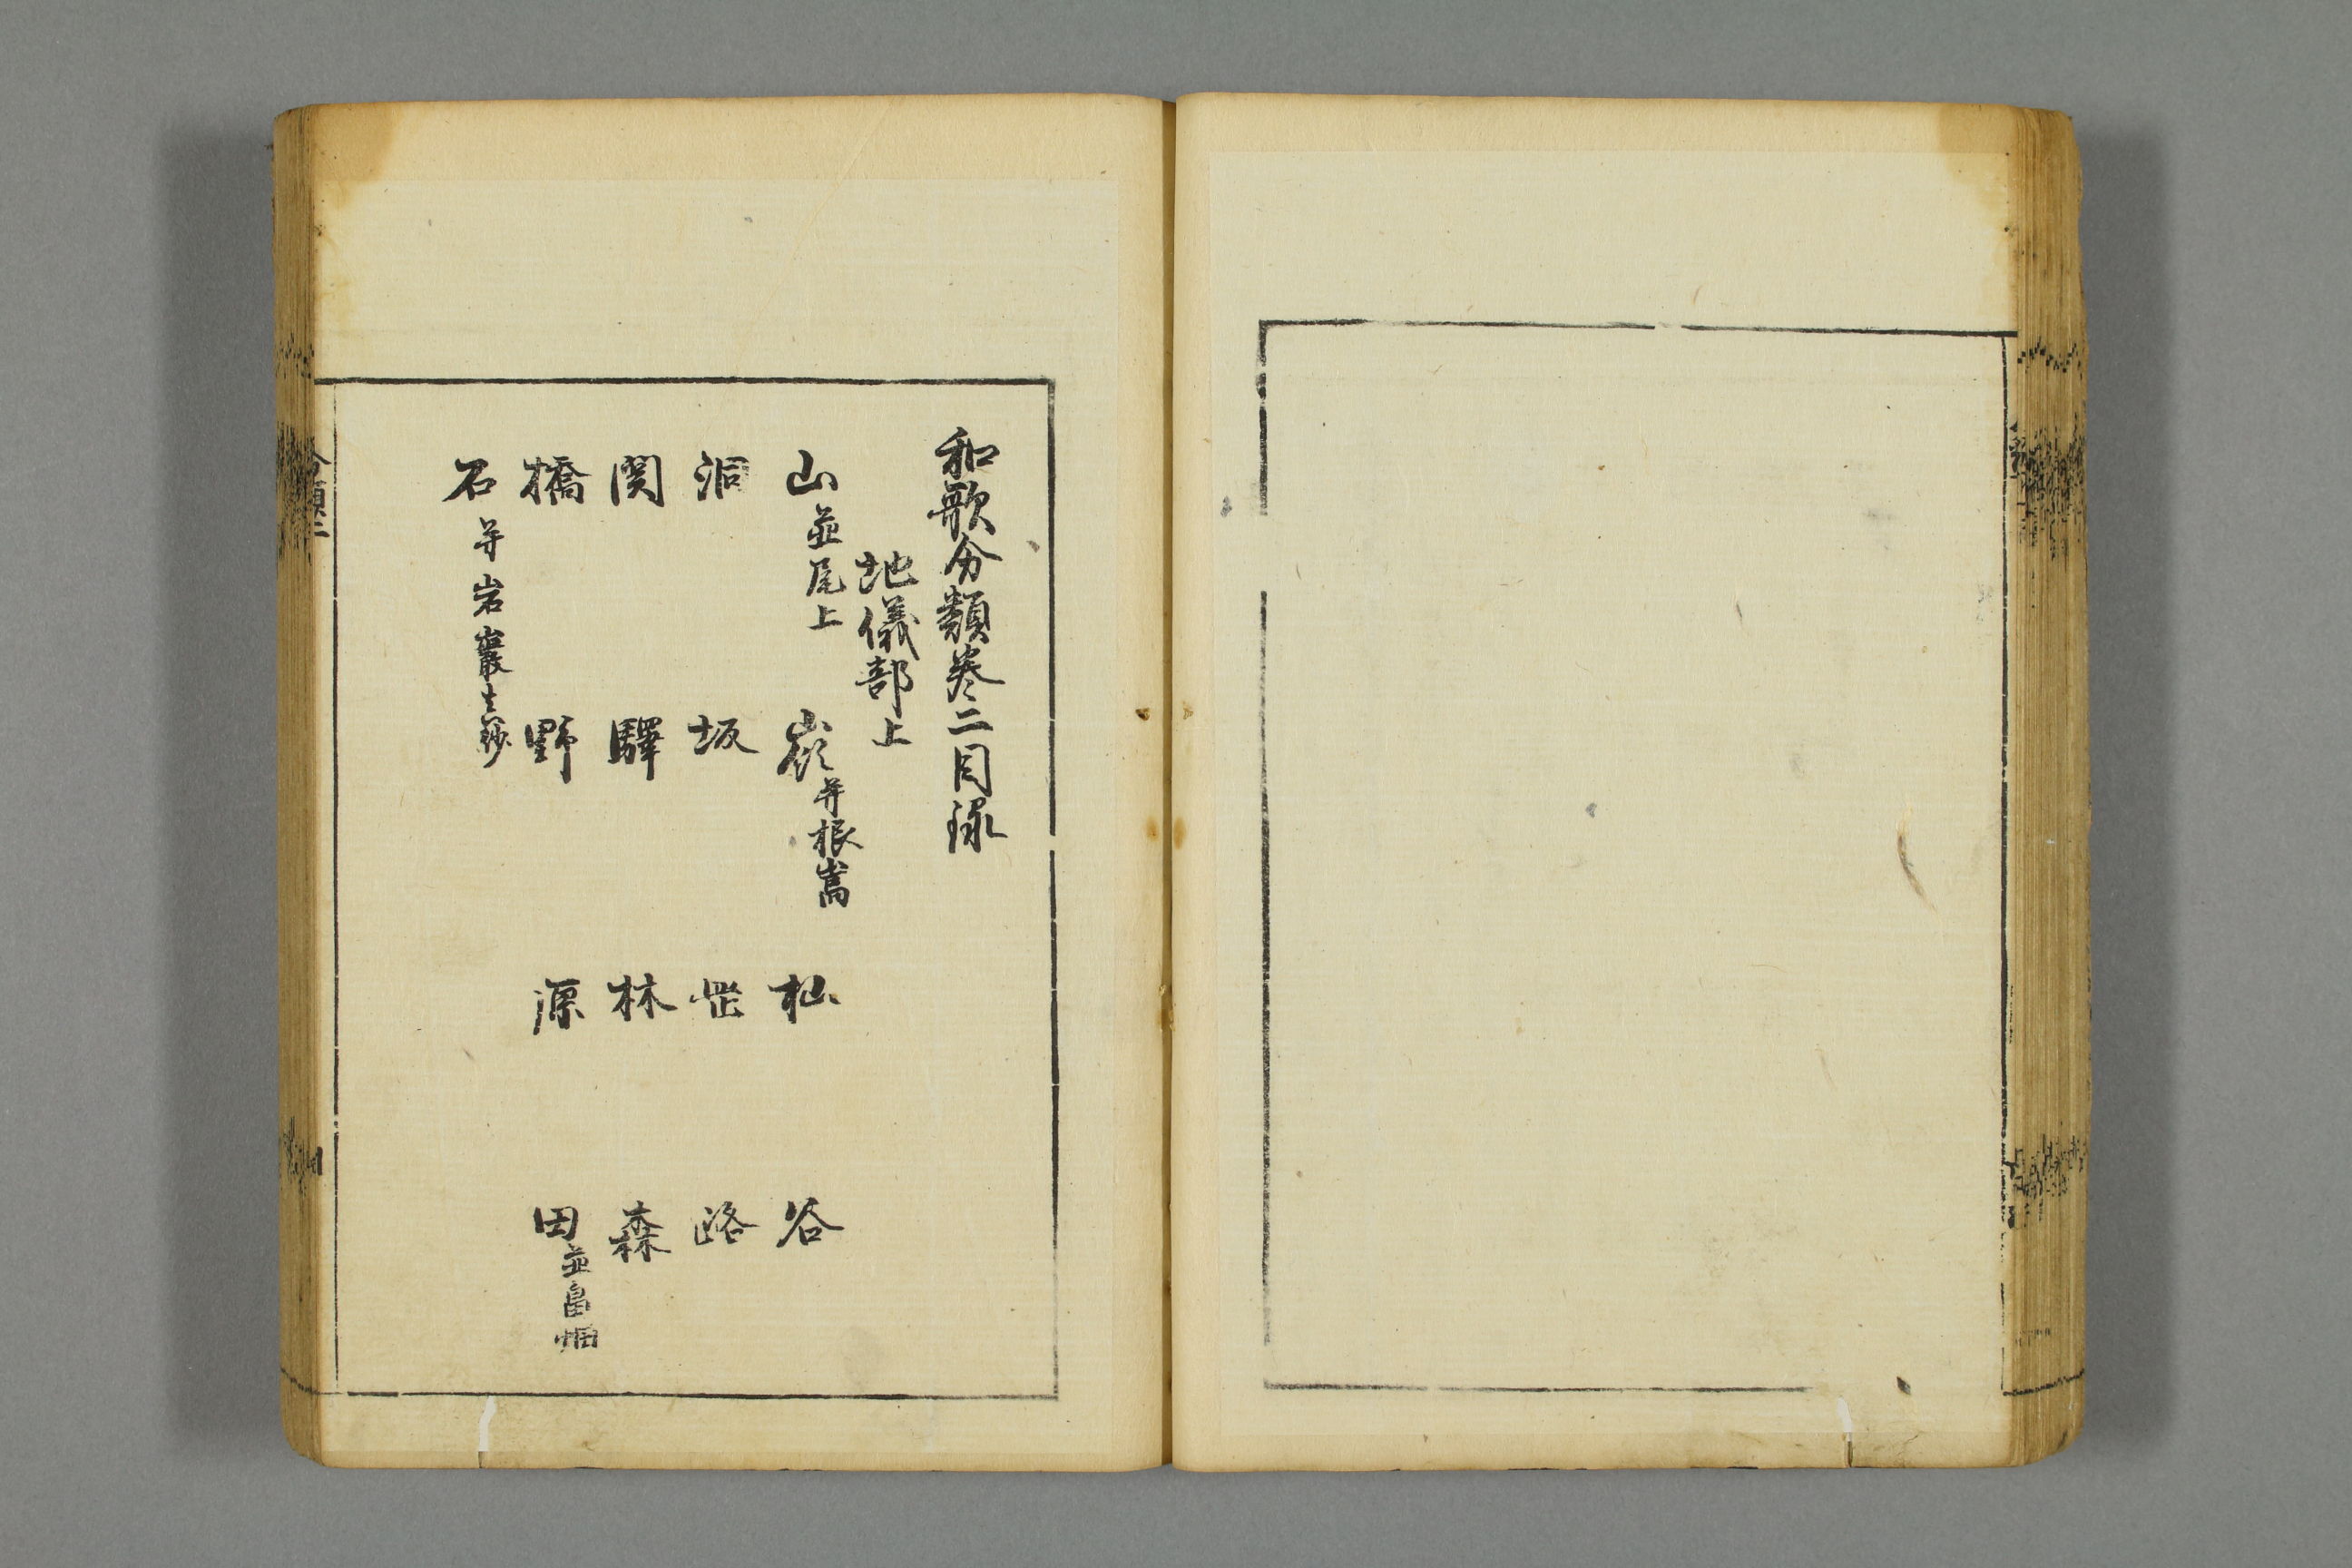 和歌分類巻二目録
地儀部上
山並尾上 嶺并根嵩 杣 谷
洞 坂 岡 路
関 驛 林 森
橋 野 原 田並畠畑
石并岩巖真砂
分類二